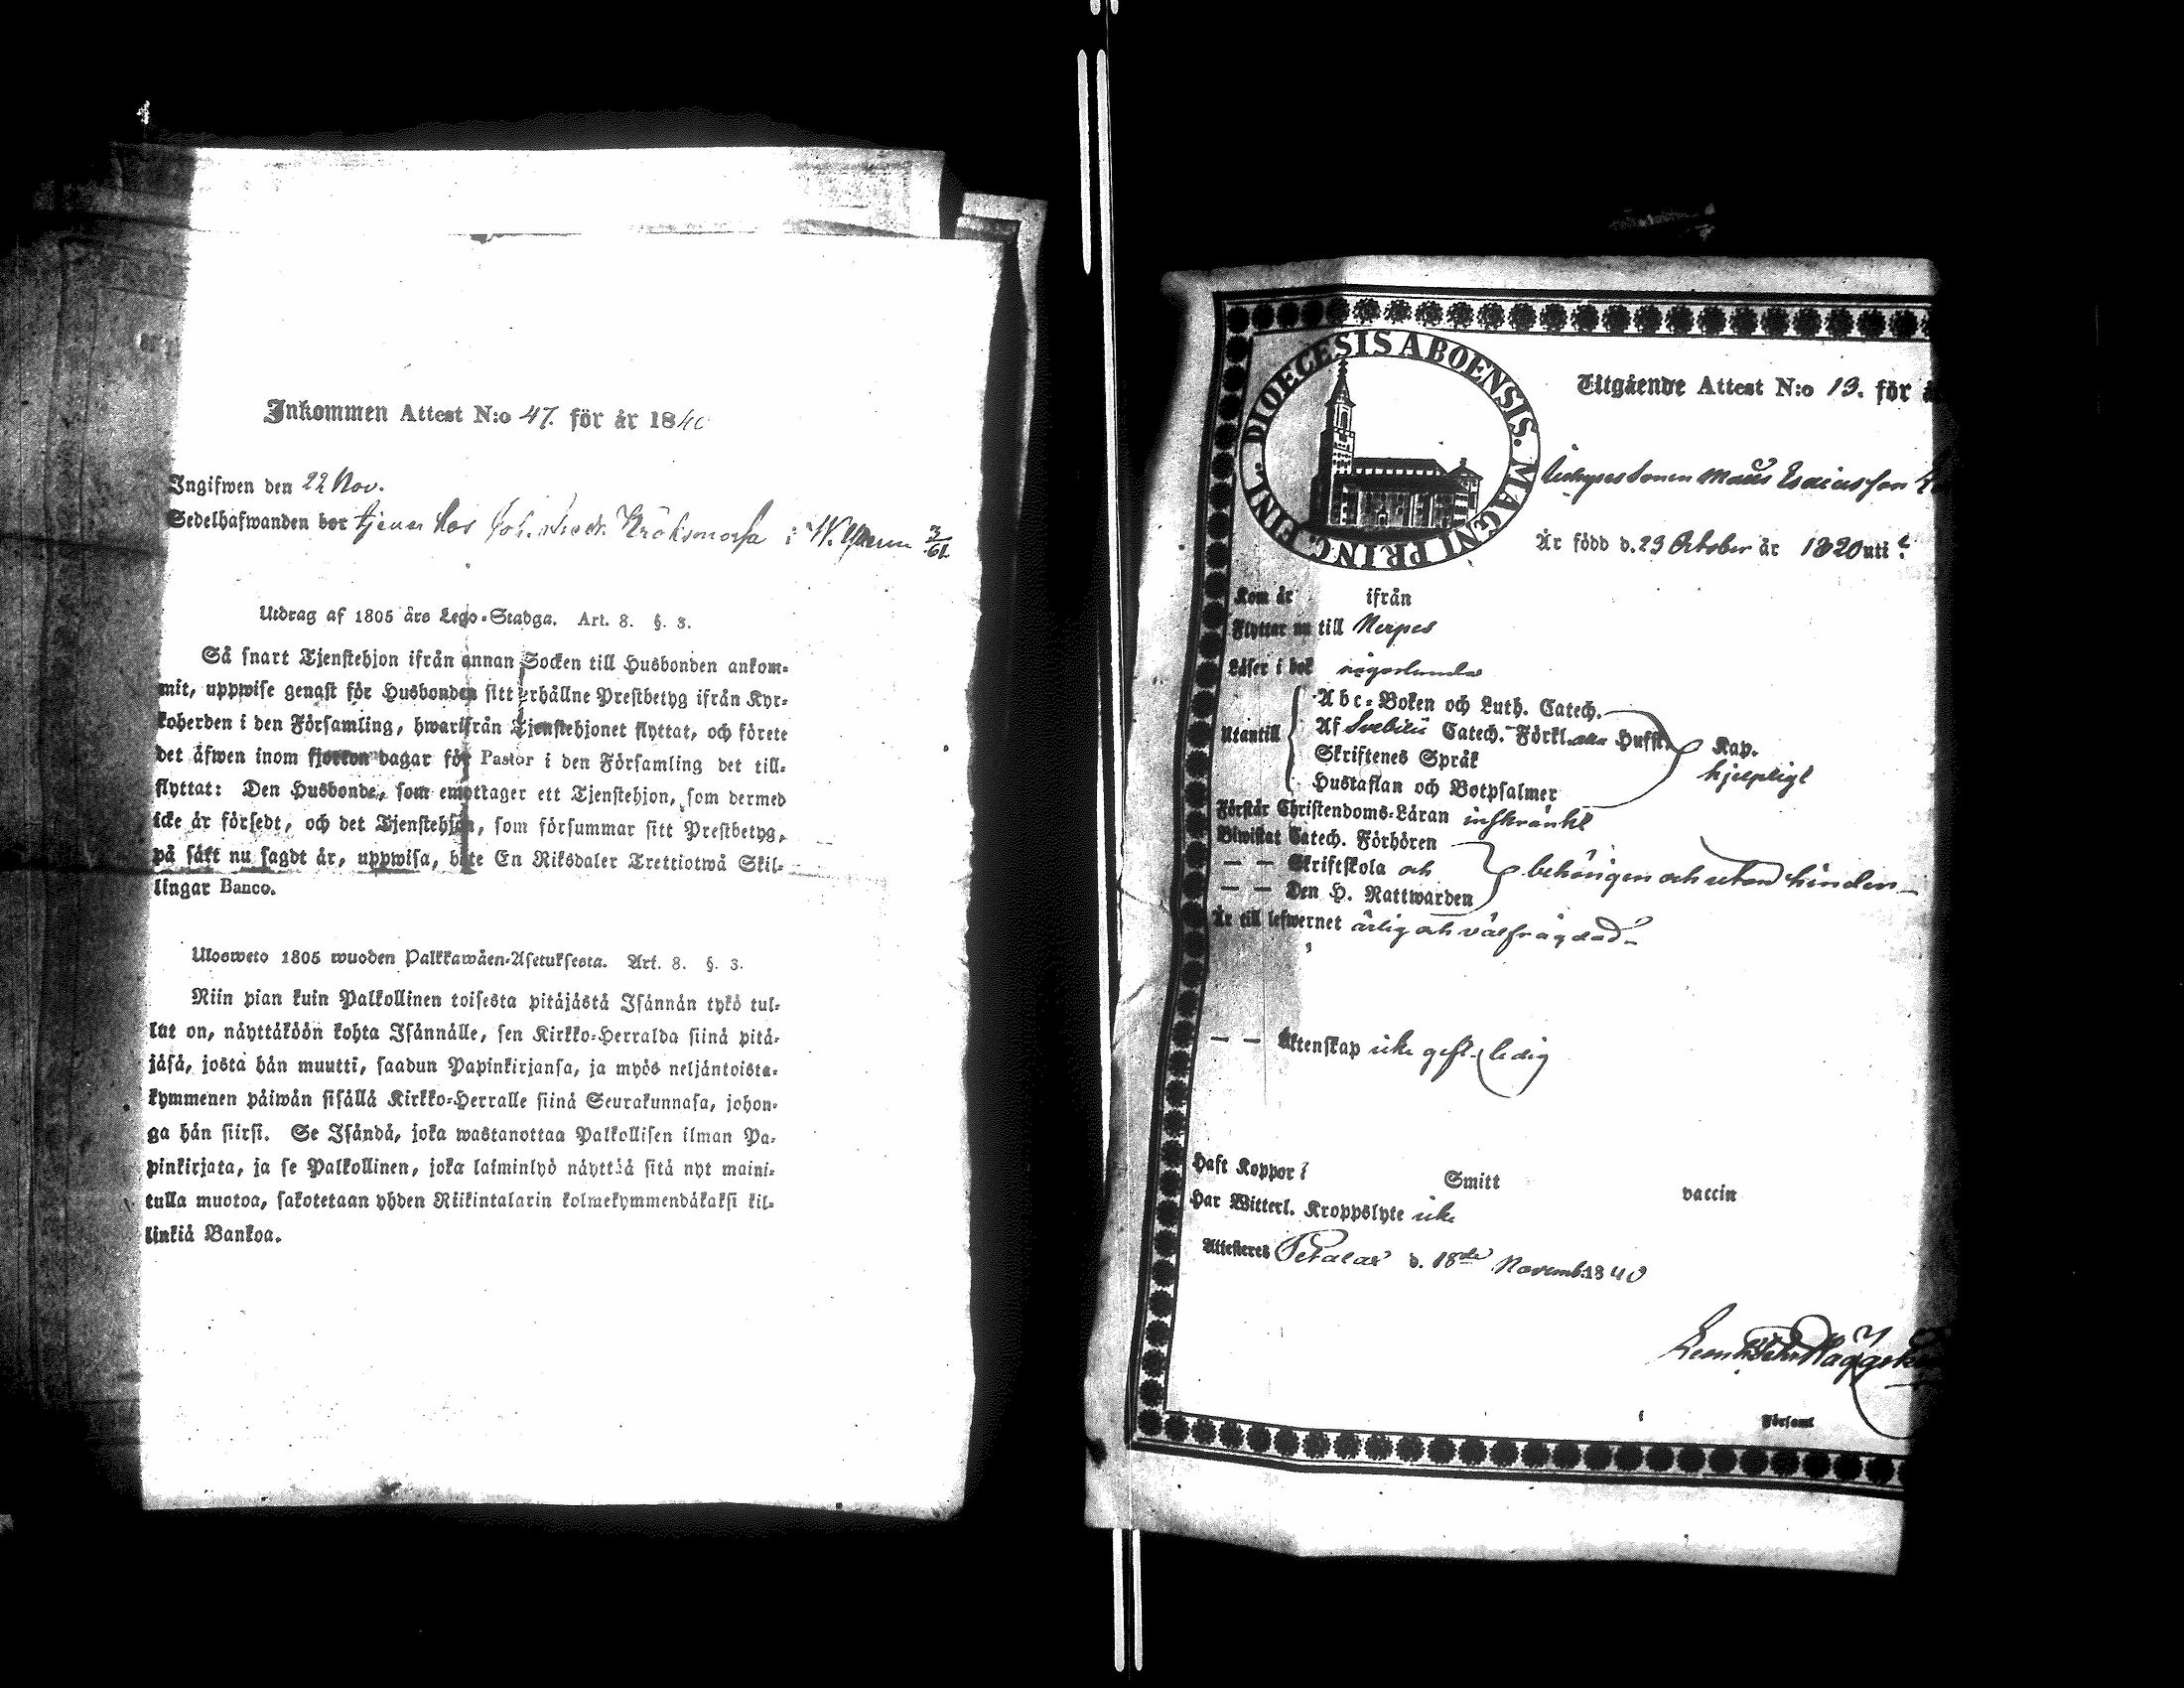 Inkommen Attest N:o 47. för år 1840
Ingifwen den 22 Nov.
Sedelhafwanden bor tjenar hos Joh. Kråksmossa i 3/61.
Utdrag af 1805 års Lego-Stadga. Art. 8. §. 3.
Så snart Tjenstehjon ifrån annan Socken till Husbonden ankom-
mit, uppwise genast för Husbonden sitt erhållne Prestbetyg ifrån Kyr-
koherden i den Församling, hwarifrån Tjenstehjonet flyttat, och förete
det äfwen inom fjorton dagar för Pastor i den Församling det till-
flyttat: Den Husbonde, som emottager ett Tjenstehjon, som dermed
icke är försedt, och det Tjenstehjon, som försummar sitt Prestbetyg,
på sätt nu sagdt är, uppwisa, böte En Riksdaler Trettiotwå Skil-
lingar Banco.
Ulosweto 1805 wuoden Palkkawäen-Asetuksesta. Art. 8. §. 3.
Niin pian kuin Palkollinen toisesta pitäjästä Isännän tykö tul-
lut on, näyttäköön kohta Isännälle, sen Kirkko-Herralda siinä pitä-
jäsä, josta hän muutti, saadun Papinkirjansa, ja myös neljäntoista-
kymmenen päiwän sisällä Kirkko-Herralle siinä Seurakunnasa, johon-
ga hän siirsi. Se Isändä, joka wastanottaa Palkollisen ilman Pa-
pinkirjata, ja se Palkollinen, joka laiminlyö näyttää sitä nyt maini-
tulla muotoa, sakotetaan yhden Riikintalarin kolmekymmendäkaksi kil-
linkiä Bankoa.
DIOECESIS ABOENSIS. MAGNI PRINC. FINL.
Utgående Attest N:o 13. för
Matts Esaiasson
Är född d. 23 October år 1820 uti
Kom år ifrån
Flyttar nu till Nerpes
Läser i bok någorlunda
Utantill
Abc-Boken och Luth. Catech.
Af Svebilii Catech. Förkl. Hufst. Kap.
hjelpligt
Skriftenes Språk
Hustaflan och Botpsalmer
Förstår Christendoms-Läran inskränkt
Biwistat Catech. Förhören
— — Skriftskola och behörigen och utan hinder
— — Den H. Nattwarden
Är till lefwernet ärlig och välfrägdad
— — Äktenskap icke gift, ledig
Haft Koppor Smitt vaccin
Har Witterl. Kroppslyte icke
Attesteres Petalax d. 18de Novemb. 1840
i Församl